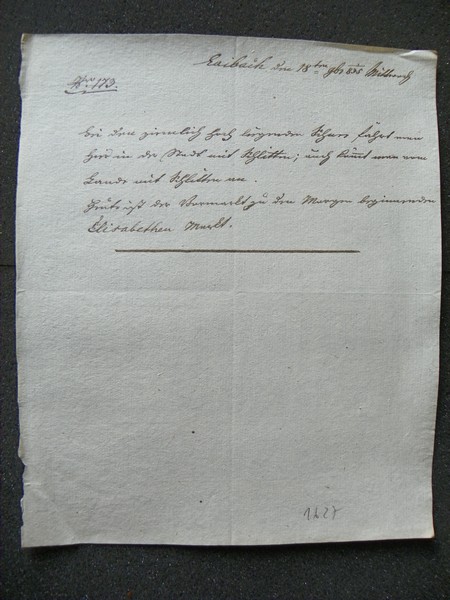 Laibach den 18ten 9br 835 Mittwoch
Nro 173.
Bei dem ziemlich hoch liegenden Schnee fährt man
hier in der Stadt mit Schlitten; auch kömmt man vom
Lande mit Schlitten an.
Heute ist der Vormarkt zu dem Morgen beginnenden
Elisabethen Markt.
1427